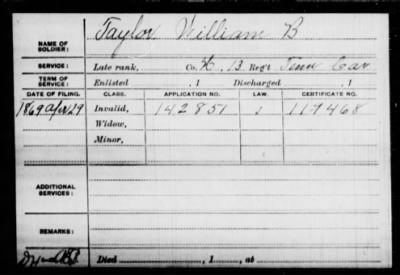 NAME OF SOLDIER: Taylor William B
SERVICE: Late rank, Co. K, 13 Reg't Tenn Cav
TERM OF SERVICE: Enlisted , 1 Discharged , 1
DATE OF FILING. CLASS. APPLICATION NO. LAW. CERTIFICATE NO.
1869 Apr 29 Invalid, 142851 1 117468
Widow,
Minor,
ADDITIONAL SERVICES:
REMARKS:
Died , 1 , at